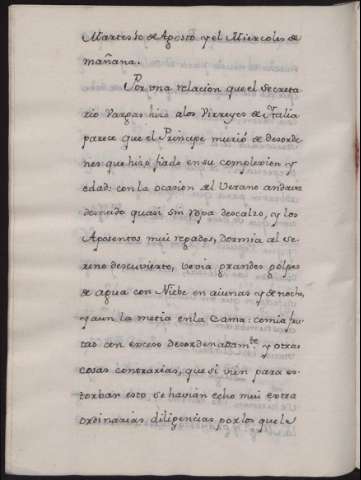 Martes 10 de Agosto y el Miercoles de
mañana.
Por vna relacion que el Secreta
rio Vargas hiso alos Vireyes de Italia
parece que el Principe murió de desorde
nes que hiso fiado en su complexion y
edad: con la ocasion del Verano andava
desnudo quasi sin ropa descalzo, y los
Aposentos mui regados, dormia al se
reno descuvierto, bevia grandes golpes
de agua con Niebe en aiunas y de noche,
y aun la metia enla Cama: comia fru
tas con exceso desordenadam.te y otras
cosas contrarias, que si vien para es
torbar esto se havian echo mui extra
ordinarias diligencias por los que le